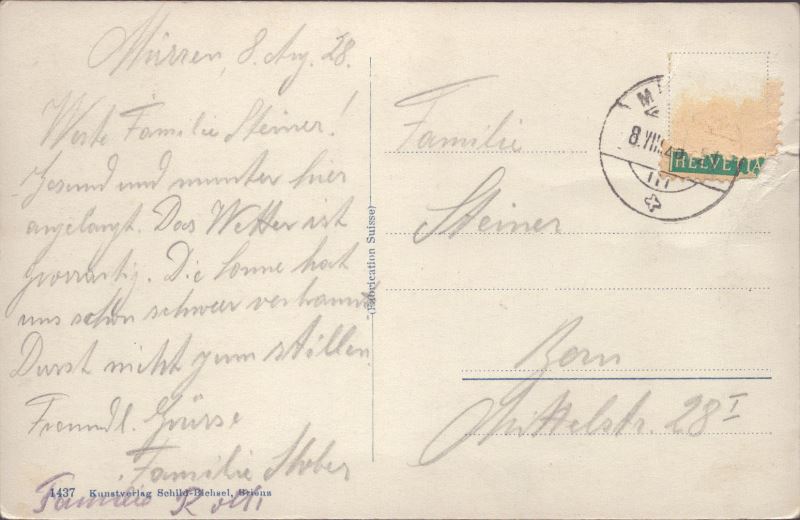 Mürren, 8. Aug. 28.
Werte Familie Steiner!
Gesund und munter hier
angelangt. Das Wetter ist
grossartig. Die Sonne hat
uns schon schwer verbrannt
Durst nicht zum stillen.
Freundl. Grüsse
Familie Stober
Familie Rolli
1437 Kunstverlag Schild-Bichsel, Brienz
(Fabrication Suisse)
Familie
Steiner
Bern
Mittelstr. 28 I
HELVETIA
8.VIII.